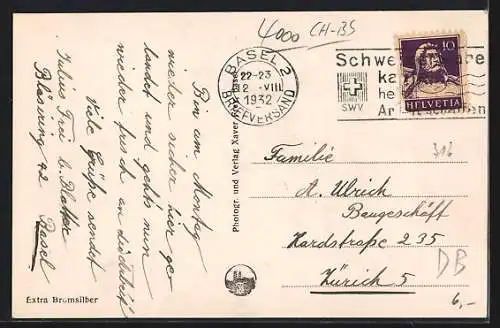 4000 CH-BS
BASEL 2
22-23
2 -VIII
1932
BRIEFVERSAND
Schwe
ka
he
Ar
SWV
10
HELVETIA
Bin am Montag
wieder sicher hier ge-
landet und geht's nun
wieder frisch an
Viele Grüße sendet
Julius Frei b. Blatter
Bläsiring 42 Basel
Extra Bromsilber
Photogr. und Verlag Xaver
316
Familie
A. Ulrich
Baugeschäft
Hardstraße 235
Zürich 5
DB
6,-